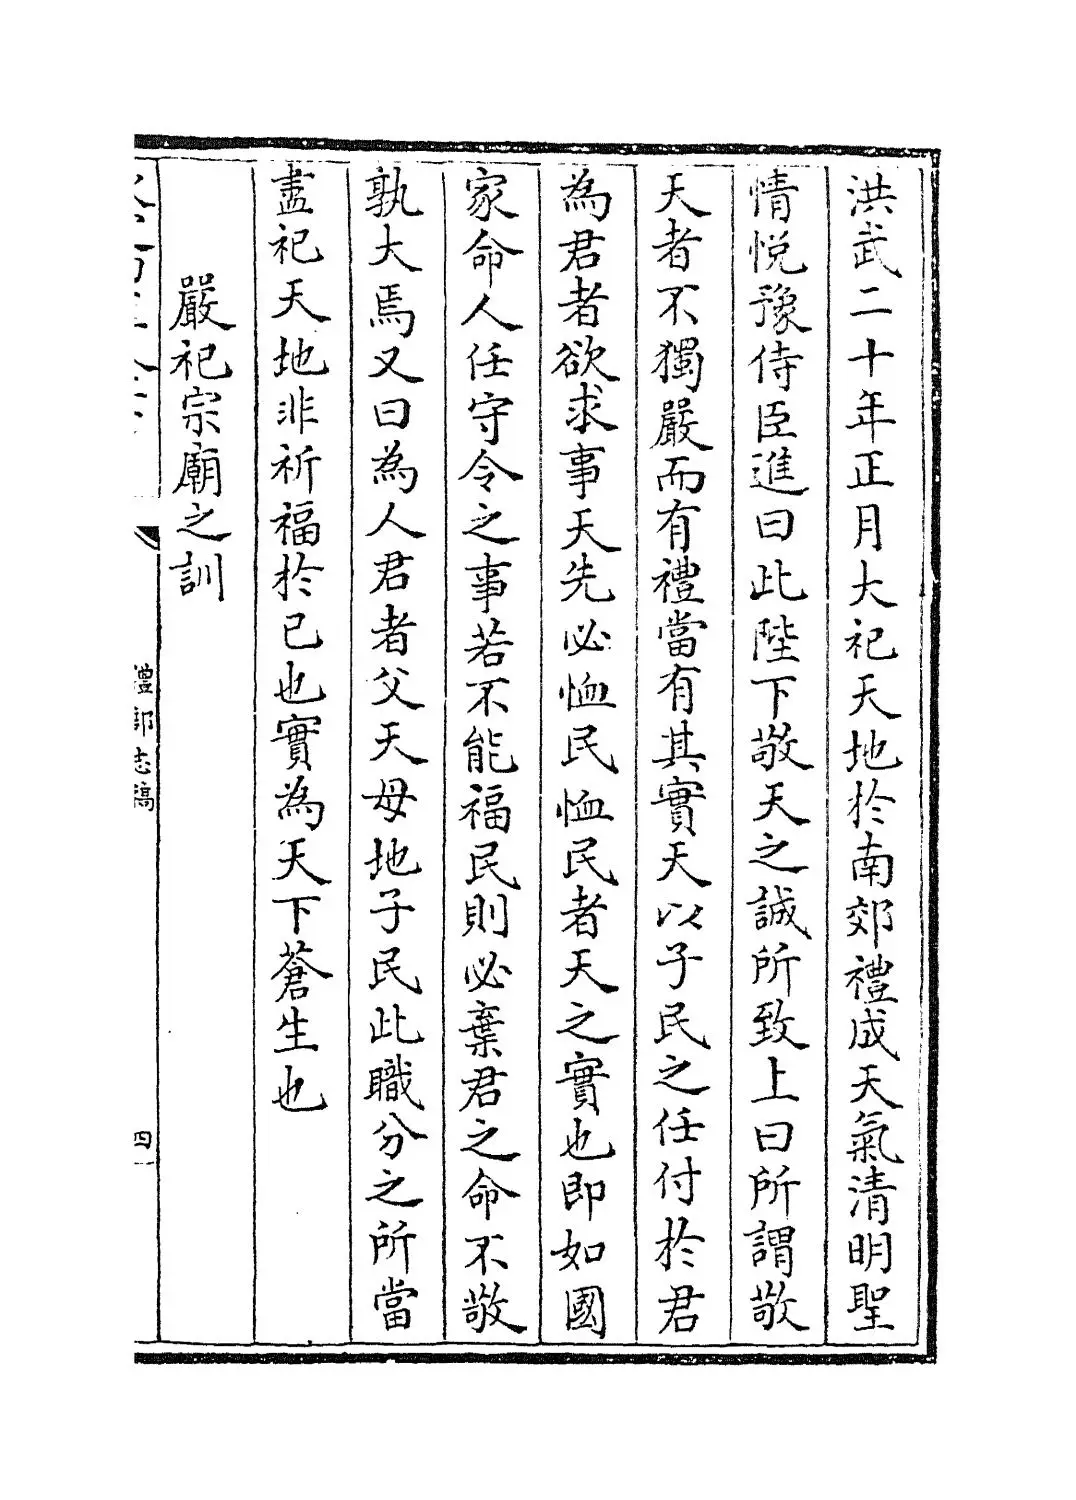 洪武二十年正月大祀天地於南郊禮成天氣清明聖
情悅豫侍臣進曰此陛下敬天之誠所致上曰所謂敬
天者不獨嚴而有禮當有其實天以子民之任付於君
為君者欲求事天先必恤民恤民者天之實也即如國
家命人任守令之事若不能福民則必棄君之命不敬
孰大焉又曰為人君者父天母地子民此職分之所當
盡祀天地非祈福於已也實為天下蒼生也
嚴祀宗廟之訓
禮部志稿
四